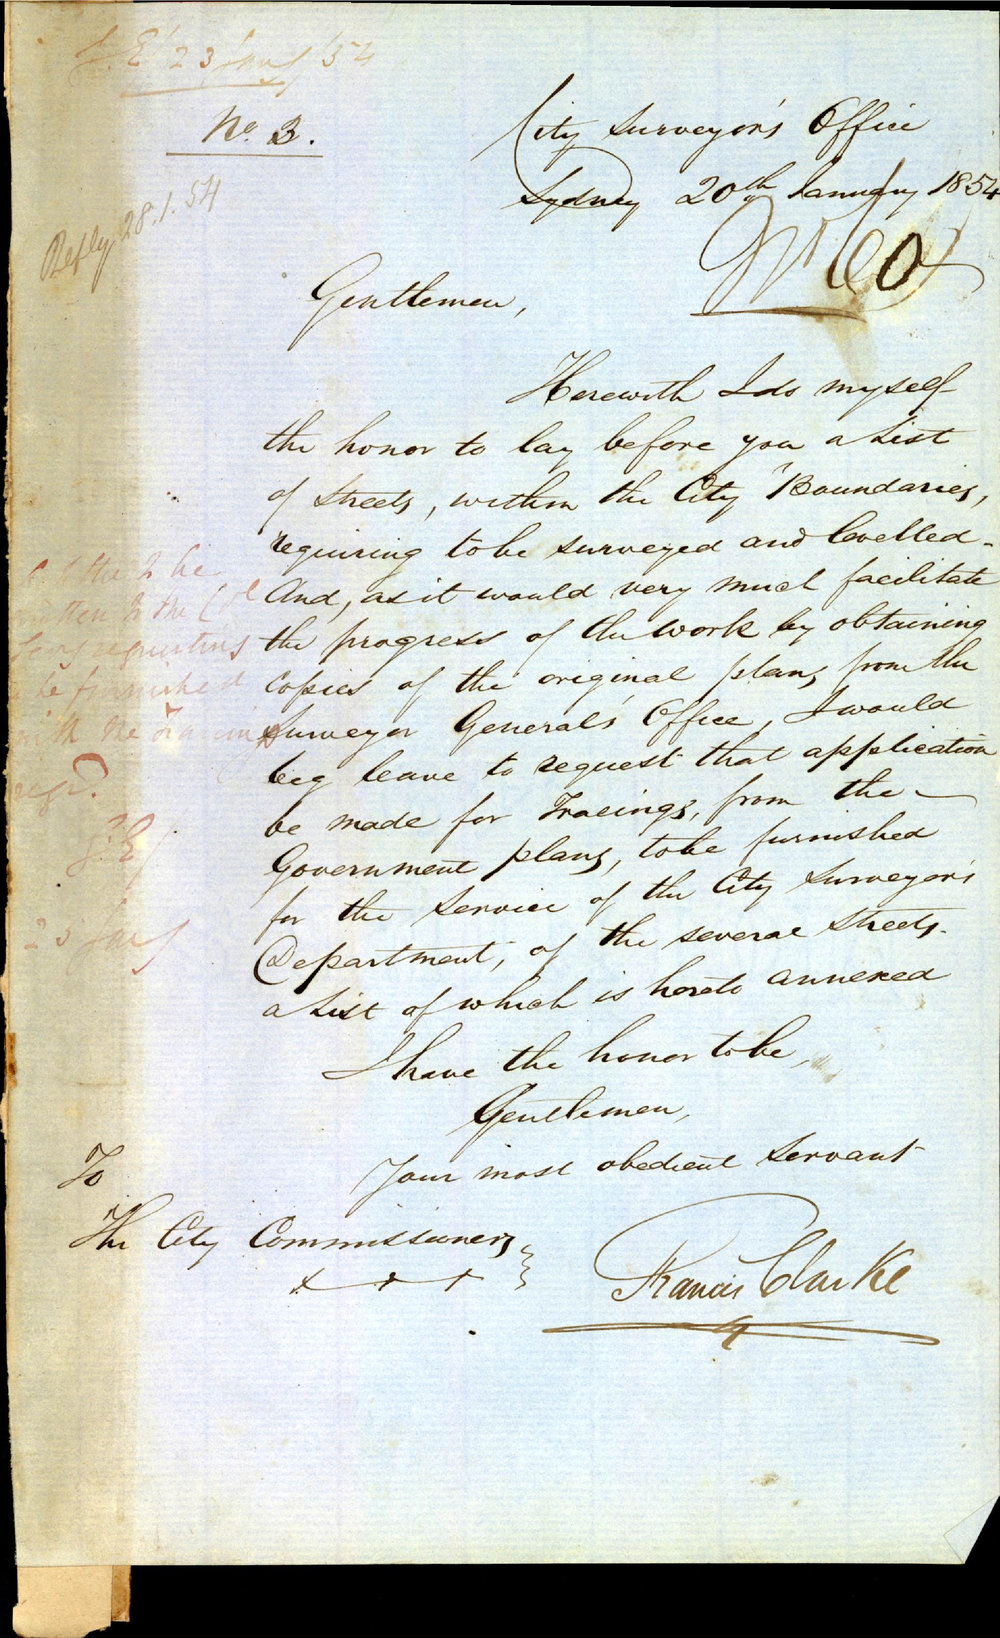 G.E 23 Jany '54
No. 3.
City Surveyor's Office
Sydney 20th January 1854
Reply 28.1.54
No 60
Gentlemen,
Herewith I do myself
the honor to lay before you a List
of Streets, within the City Boundaries,
requiring to be surveyed and levelled.
And, as it would very much facilitate
the progress of the work by obtaining
copies of the original plans, from the
Surveyor General's Office, I would
beg leave to request that application
be made for Tracings, from the
Government plans, to be furnished
for the service of the City Surveyor's
Department, of the several Streets.
a List of which is hereto annexed
I have the honor to be,
Gentlemen,
Your most obedient Servant
Francis Clarke
To
The City Commissioners
to be
to the Col
Secy requesting
be furnished
the tracings
G.E
23 Jany